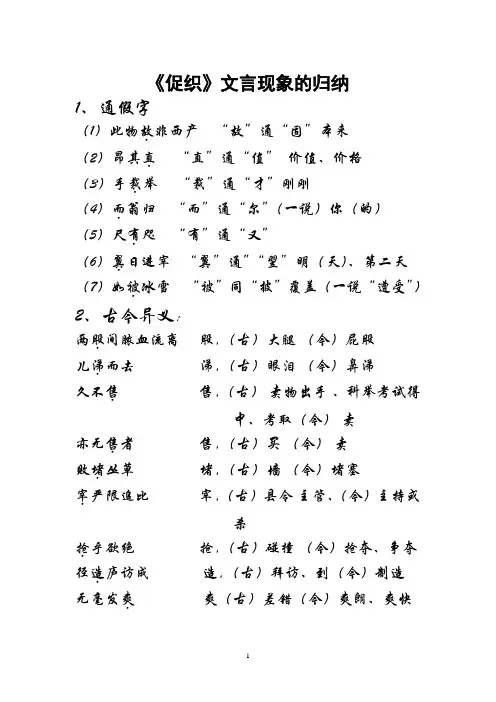 《促织》文言现象的归纳
1、通假字
(1)此物故非西产 “故”通“固”本来
(2)昂其直 “直”通“值” 价值、价格
(3)手裁举 “裁”通“才”刚刚
(4)而翁归 “而”通“尔”(一说)你(的)
(5)尺有咫 “有”通“又”
(6)翼日进宰 “翼”通”“翌”明(天)、第二天
(7)如被冰雪 “被”同“披”覆盖(一说“遭受”)
2、古今异义:
两股间脓血流离 股,(古)大腿 (今)屁股
儿涕而去 涕,(古)眼泪 (今)鼻涕
久不售 售,(古)卖物出手、科举考试得
中、考取(今)卖
亦无售者 售,(古)买 (今)卖
败堵丛草 堵,(古)墙 (今)堵塞
宰严限追比 宰,(古)县令 主管、(今)主持或
杀
抢乎欲绝 抢,(古)碰撞 (今)抢夺、争夺
径造庐访成 造,(古)拜访、到(今)制造
无毫发爽 爽(古)差错(今)爽朗、爽快
1